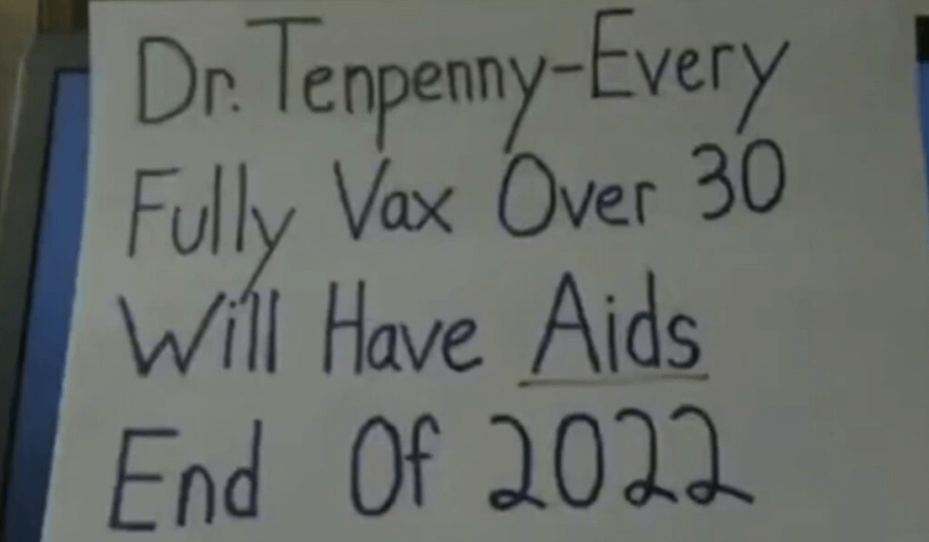 Dr. Tenpenny-Every
Fully Vax Over 30
Will Have Aids
End Of 2022